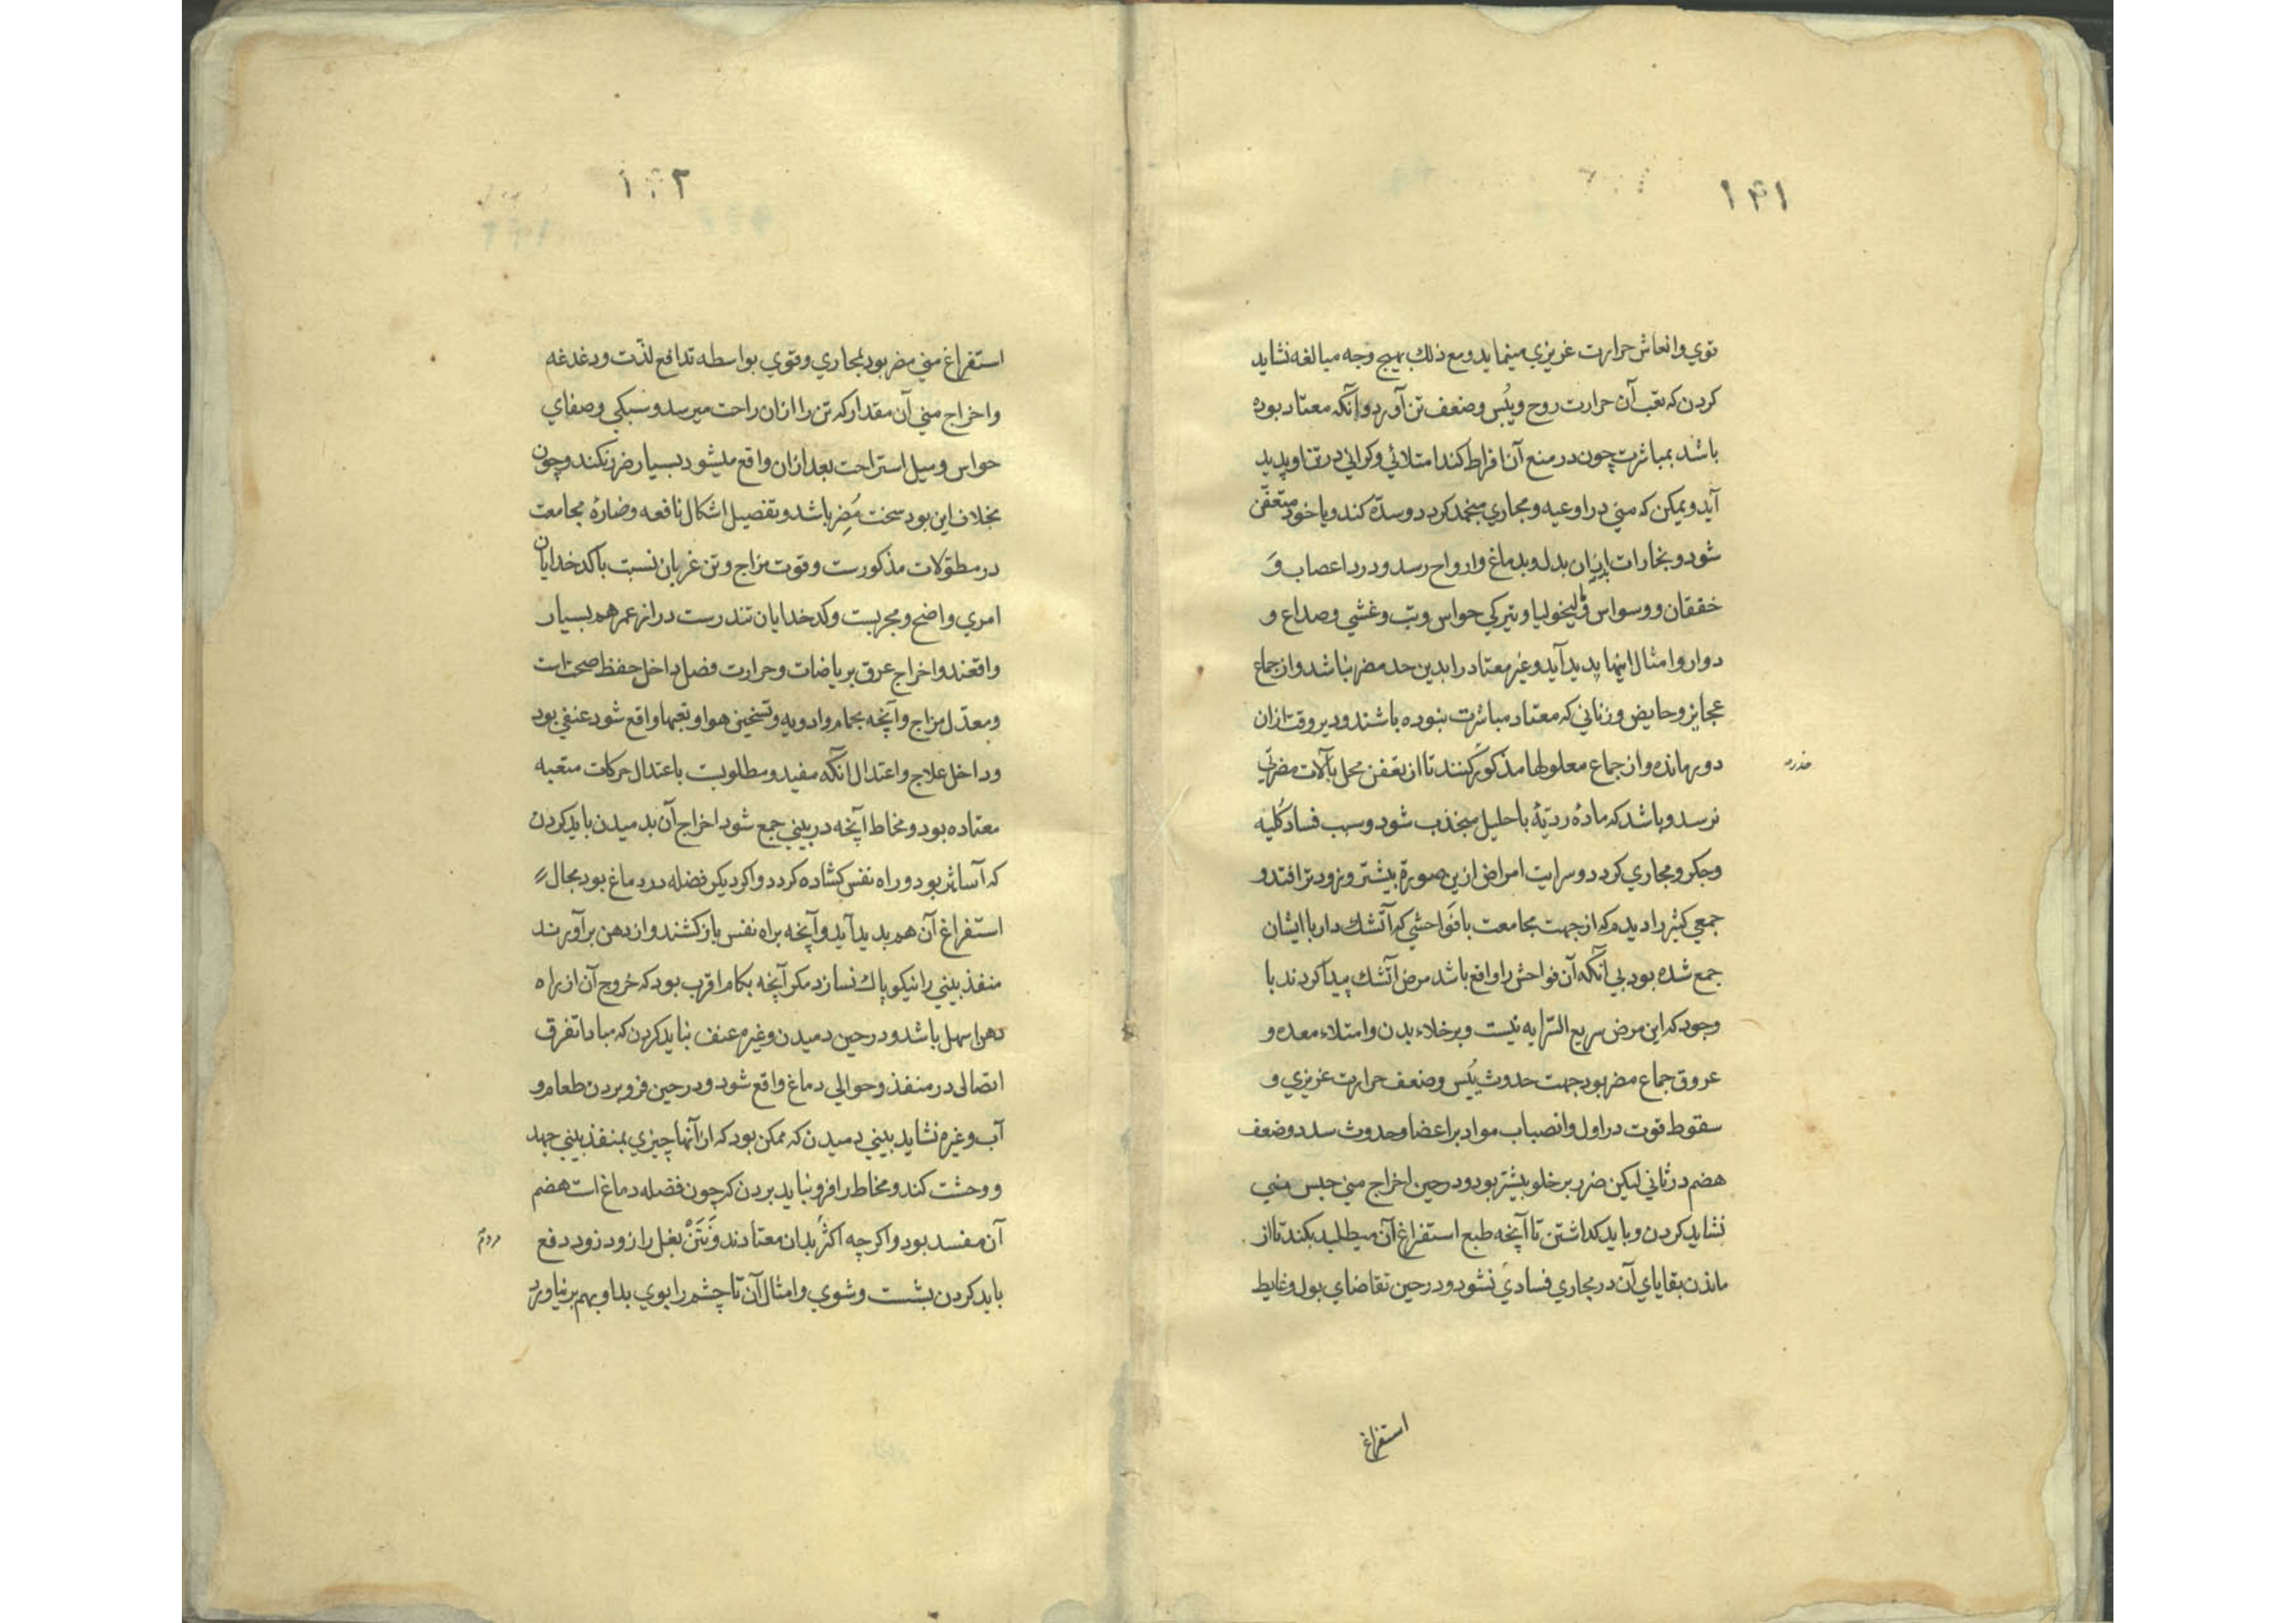 ۱۴۱
قوي وانعاش حرارت غريزي مينمايد ومع ذلك بهيچ وجه مبالغه نشايد
كردن كه تعب آن حرارت روح ويُبس وضعف تن آورد وآنكه معتاد بوده
باشد بمباشرت چون در منع آن افراط كند امتلائي وكراني در تن او پديد
آيد ويمكن كه مني در اوعيه ومجاري منجمد كردد وسدّه كند ويا خود متعفّن
شود وبخارات ازان بدل وبدماغ وارواح رسد ودرد اعصاب وَ
خفقان ووسواس وماليخوليا وتيركي حواس وتب وغشي وصداع و
دوار وامثال اينها پديد آيد وغير معتاد را بدين حد مضر نباشد واز جماع
عجايز وحايض وزناني كه معتاد مباشرت نبوده باشند ودير وقت ازان
دور مانده واز جماع معلولها مذكور كنند تا از تعفن محل بآلات مضرتي
حذر
نرسد وباشد كه مادهٔ رديّهٔ باحليل منجذب شود وسبب فساد كُليه
وجكر ومجاري كردد وسرايت امراض ازين صورة بيشتر وزودتر افتد و
جمعي كثير را ديدم كه از جهت مجامعت با فواحشي كه آتشك دار با ايشان
جمع شده بود بي آنكه آن فواحش را واقع باشد مرض آتشك پيدا كردند با
وجود كه اين مرض سريع السّرايه نيست وبر خلاء بدن وامتلاء معده و
عروق جماع مضر بود جهت حدوث يُبس وضعف حرارت غريزي و
سقوط قوت در اول وانصباب مواد بر اعضا وحدوث سدد وضعف
هضم در ثاني ليكن ضرر بر خلو بيشتر بود ودر حين اخراج مني حبس مني
نشايد كردن وبايد كداشتن تا آنچه طبع استفراغ آن ميطلبد بكند تا از
ماندن بقاياي آن در مجاري فسادي نشود ودر حين تقاضاي بول وغايط
استفراغ
۱۴۲
استفراغ مني مضر بود بمجاري وقوي بواسطه تدافع لذّت ودغدغه
واخراج مني آن مقدار كه تن را ازان راحت ميرسد وسبكي وصفاي
حواس وميل استراحت بعد ازان واقع ميشود بسيار ضرر نكند وچون
بخلاف اين بود سخت مُضِر باشد وتفصيل اشكال نافعه وضارهٔ مجامعت
در مطوّلات مذكورست وقوت مزاج وتن غربان نسبت با كدخدايان
امري واضح ومجربست وكدخدايان تندرست دراز عمر هم بسيار
واقعند واخراج عرق برياضات وحرارت فصل داخل حفظ صحّت است
ومعدّل مزاج وآنچه بحمام وادويه وتسخين هوا وتعبها واقع شود عنفي بود
وداخل علاج واعتدال آنكه مفيد ومطلوبست باعتدال حركات متعبه
معتاده بود ومخاط آنچه در بيني جمع شود اخراج آن بدميدن بايد كردن
كه آسانتر بود وراه نفس كشاده كردد واكر ديكر فضله در دماغ بود مجال
استفراغ آن هم پديد آيد وآنچه براه نفس باز كشند واز دهن برآورند
منفذ بيني را نيكو پاك نسازد مكر آنچه بكام اقرب بود كه خروج آن از راه
دهن اسهل باشد ودر حين دميدن وغيره عنف نبايد كردن كه مبادا تفرق
اتصالى در منفذ وحوالي دماغ واقع شود ودر حين فرو بردن طعام و
آب وغيره نشايد بيني دميدن كه ممكن بود كه از آنها چيزي بمنفذ بيني جهد
ووحشت كند ومخاط را فرو نبايد بردن كه چون فضله دماغ است هضم
آن مفسد بود واكرچه اكثر بدان معتادند ونَتَنْ بغل را زود زود دفع
مردم
بايد كردن بشست وشوي وامثال آن تا چشم را بوي بد او بهم بر نياورد